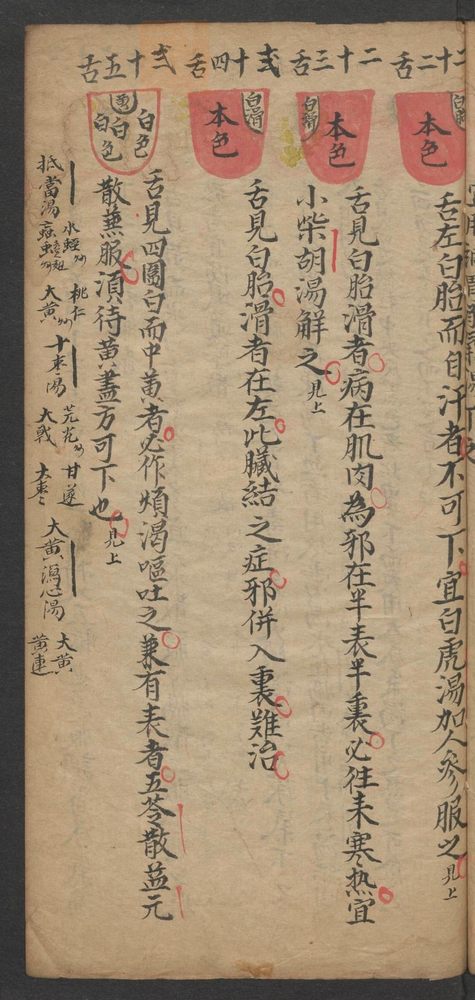 二十二舌
白滑
本色
舌左白胎而自汗者不可下宜白虎湯加人参服之見上
二十三舌
白滑
本色
舌見白胎滑者病在肌肉為邪在半表半裏必往来寒热宜
小柴胡湯解之見上
弍十四舌
白滑
本色
舌見白胎滑者在左此臟結之症邪併入裏難治
弍十五舌
白色
黄
白
白色
舌見四圍白而中黄者必作煩渴嘔吐之兼有表者五苓散益元
散兼服須待黄盡方可下也見上
抵當湯
水蛭
桃仁
大黄
十枣湯
芫花
甘遂
大戟
大枣
大黄瀉心湯
大黄
黄連